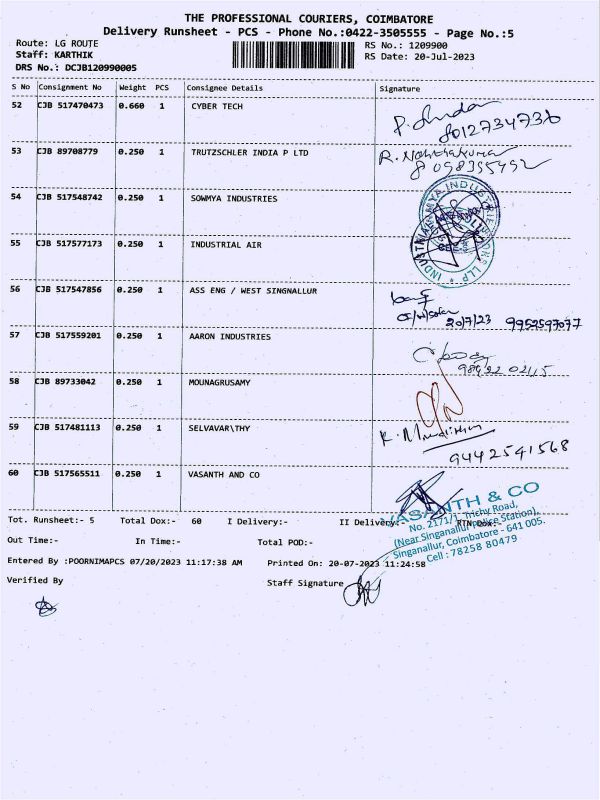 THE PROFESSIONAL COURIERS, COIMBATORE
Delivery Runsheet - PCS - Phone No.:0422-3505555 - Page No.:5
Route: LG ROUTE RS No.: 1209900
Staff: KARTHIK RS Date: 20-Jul-2023
DRS No.: DCJB120990005
S No Consignment No Weight PCS Consignee Details Signature
52 CJB 517470473 0.660 1 CYBER TECH
8012734736
53 CJB 89708779 0.250 1 TRUTZSCHLER INDIA P LTD
54 CJB 517548742 0.250 1 SOWMYA INDUSTRIES
55 CJB 517577173 0.250 1 INDUSTRIAL AIR
56 CJB 517547856 0.250 1 ASS ENG / WEST SINGNALLUR
20/7/23 9952597077
57 CJB 517559201 0.250 1 AARON INDUSTRIES
58 CJB 89733042 0.250 1 MOUNAGRUSAMY
59 CJB 517481113 0.250 1 SELVAVAR\THY
9442541568
60 CJB 517565511 0.250 1 VASANTH AND CO
VASANTH & CO
No. 2171/1, Trichy Road,
(Near Singanallur Police Station),
Singanallur, Coimbatore - 641 005.
Cell : 78258 80479
Tot. Runsheet:- 5 Total Dox:- 60 I Delivery:- II Delivery:- RTN Dox:-
Out Time:- In Time:- Total POD:-
Entered By :POORNIMAPCS 07/20/2023 11:17:38 AM Printed On: 20-07-2023 11:24:58
Verified By Staff Signature